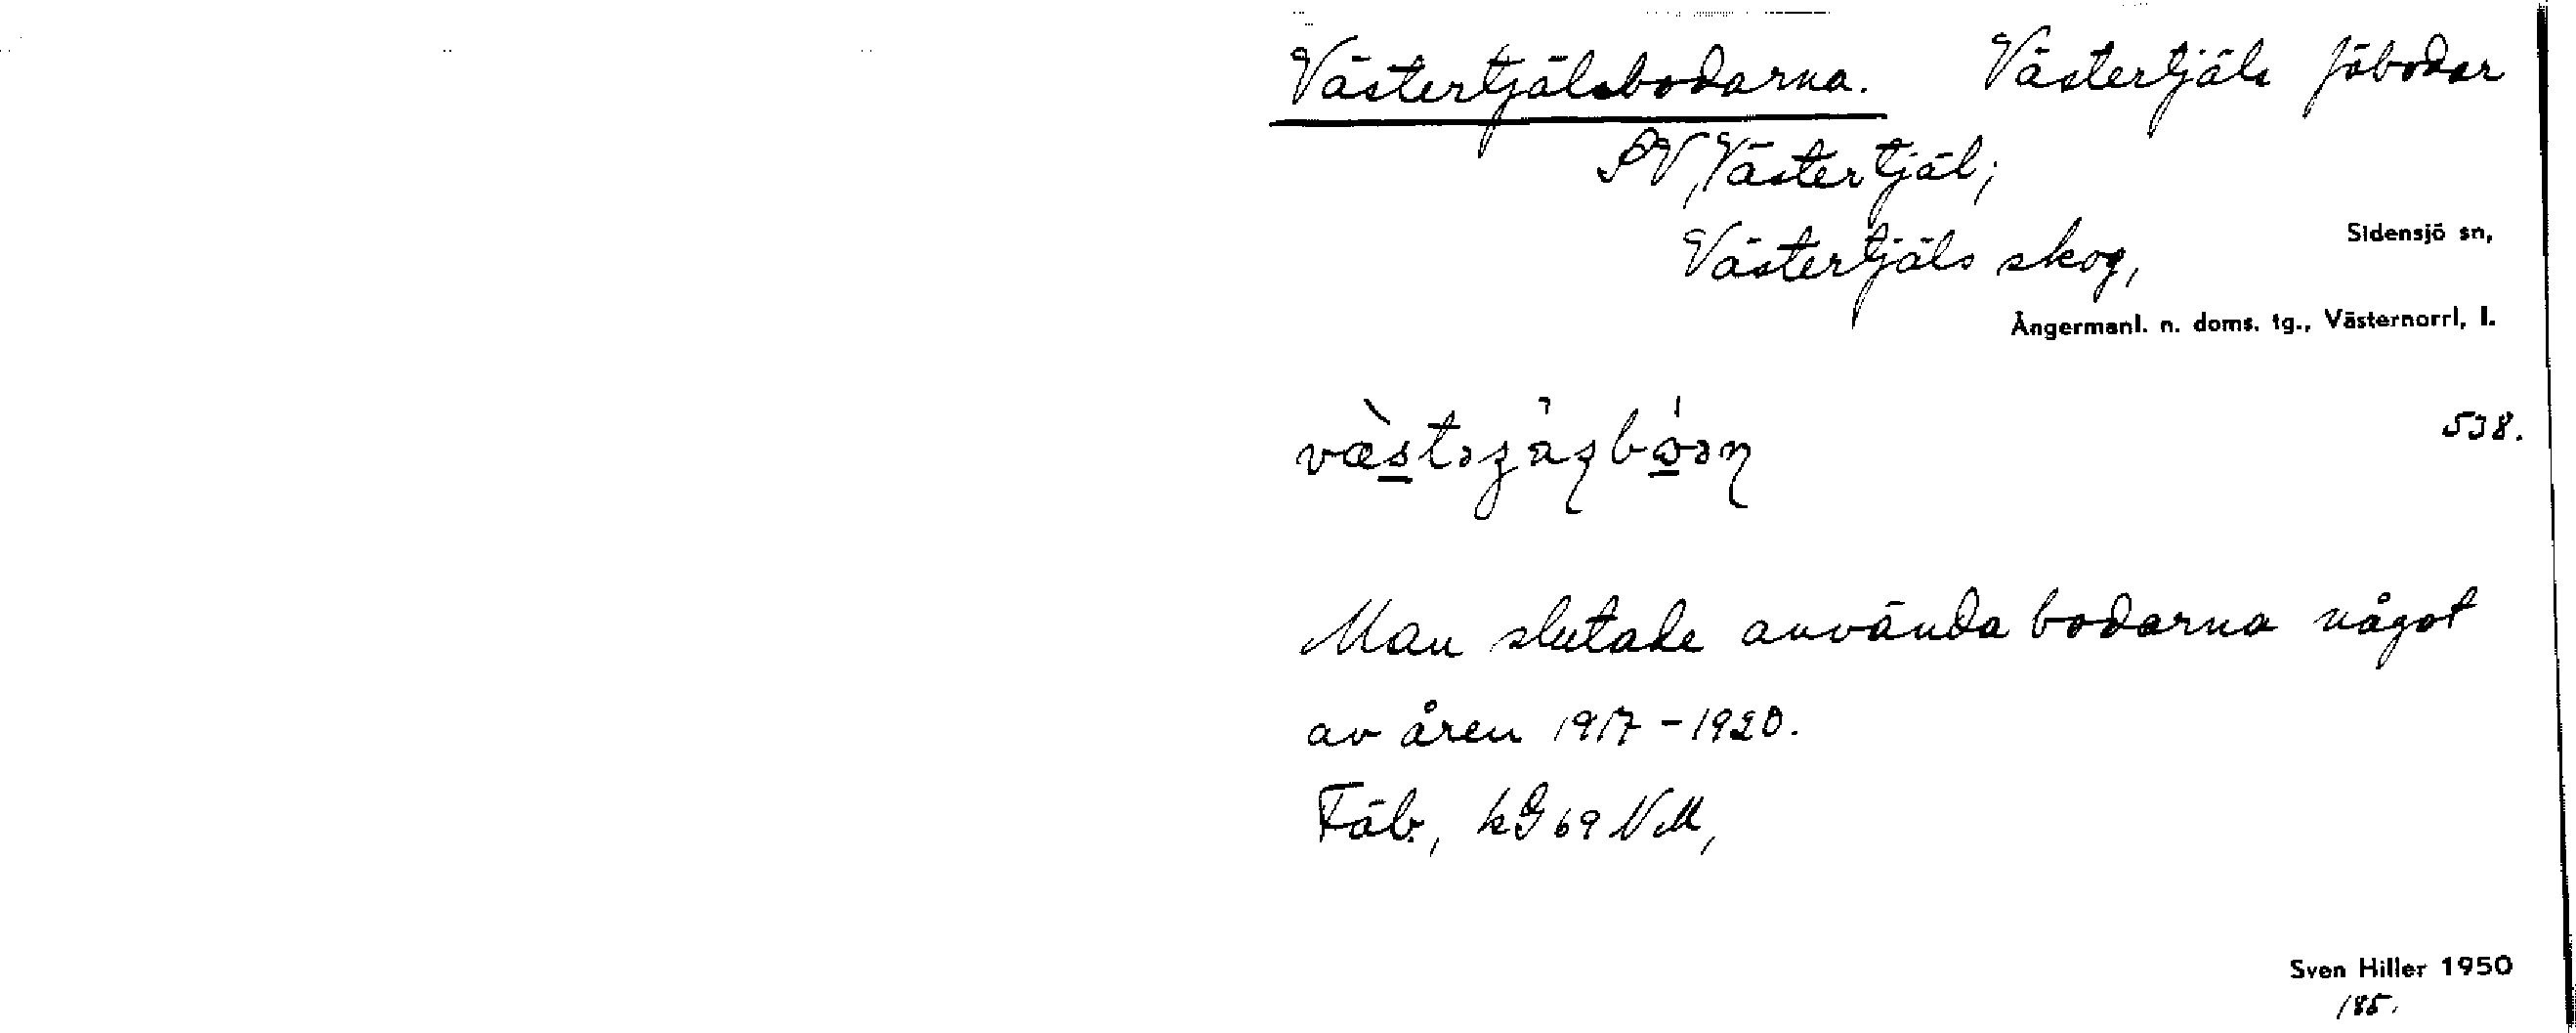 Västertjälsbodarna. Västertjäls fäbodar
SV Västertjäl;
Västertjäls skog, Sidensjö sn,
Ångermanl. n. doms. tg., Västernorrl, l.
538.
Man slutade använda bodarna något
av åren 1917-1920.
Fäb., kG 69 NM,
Sven Hiller 1950
185.